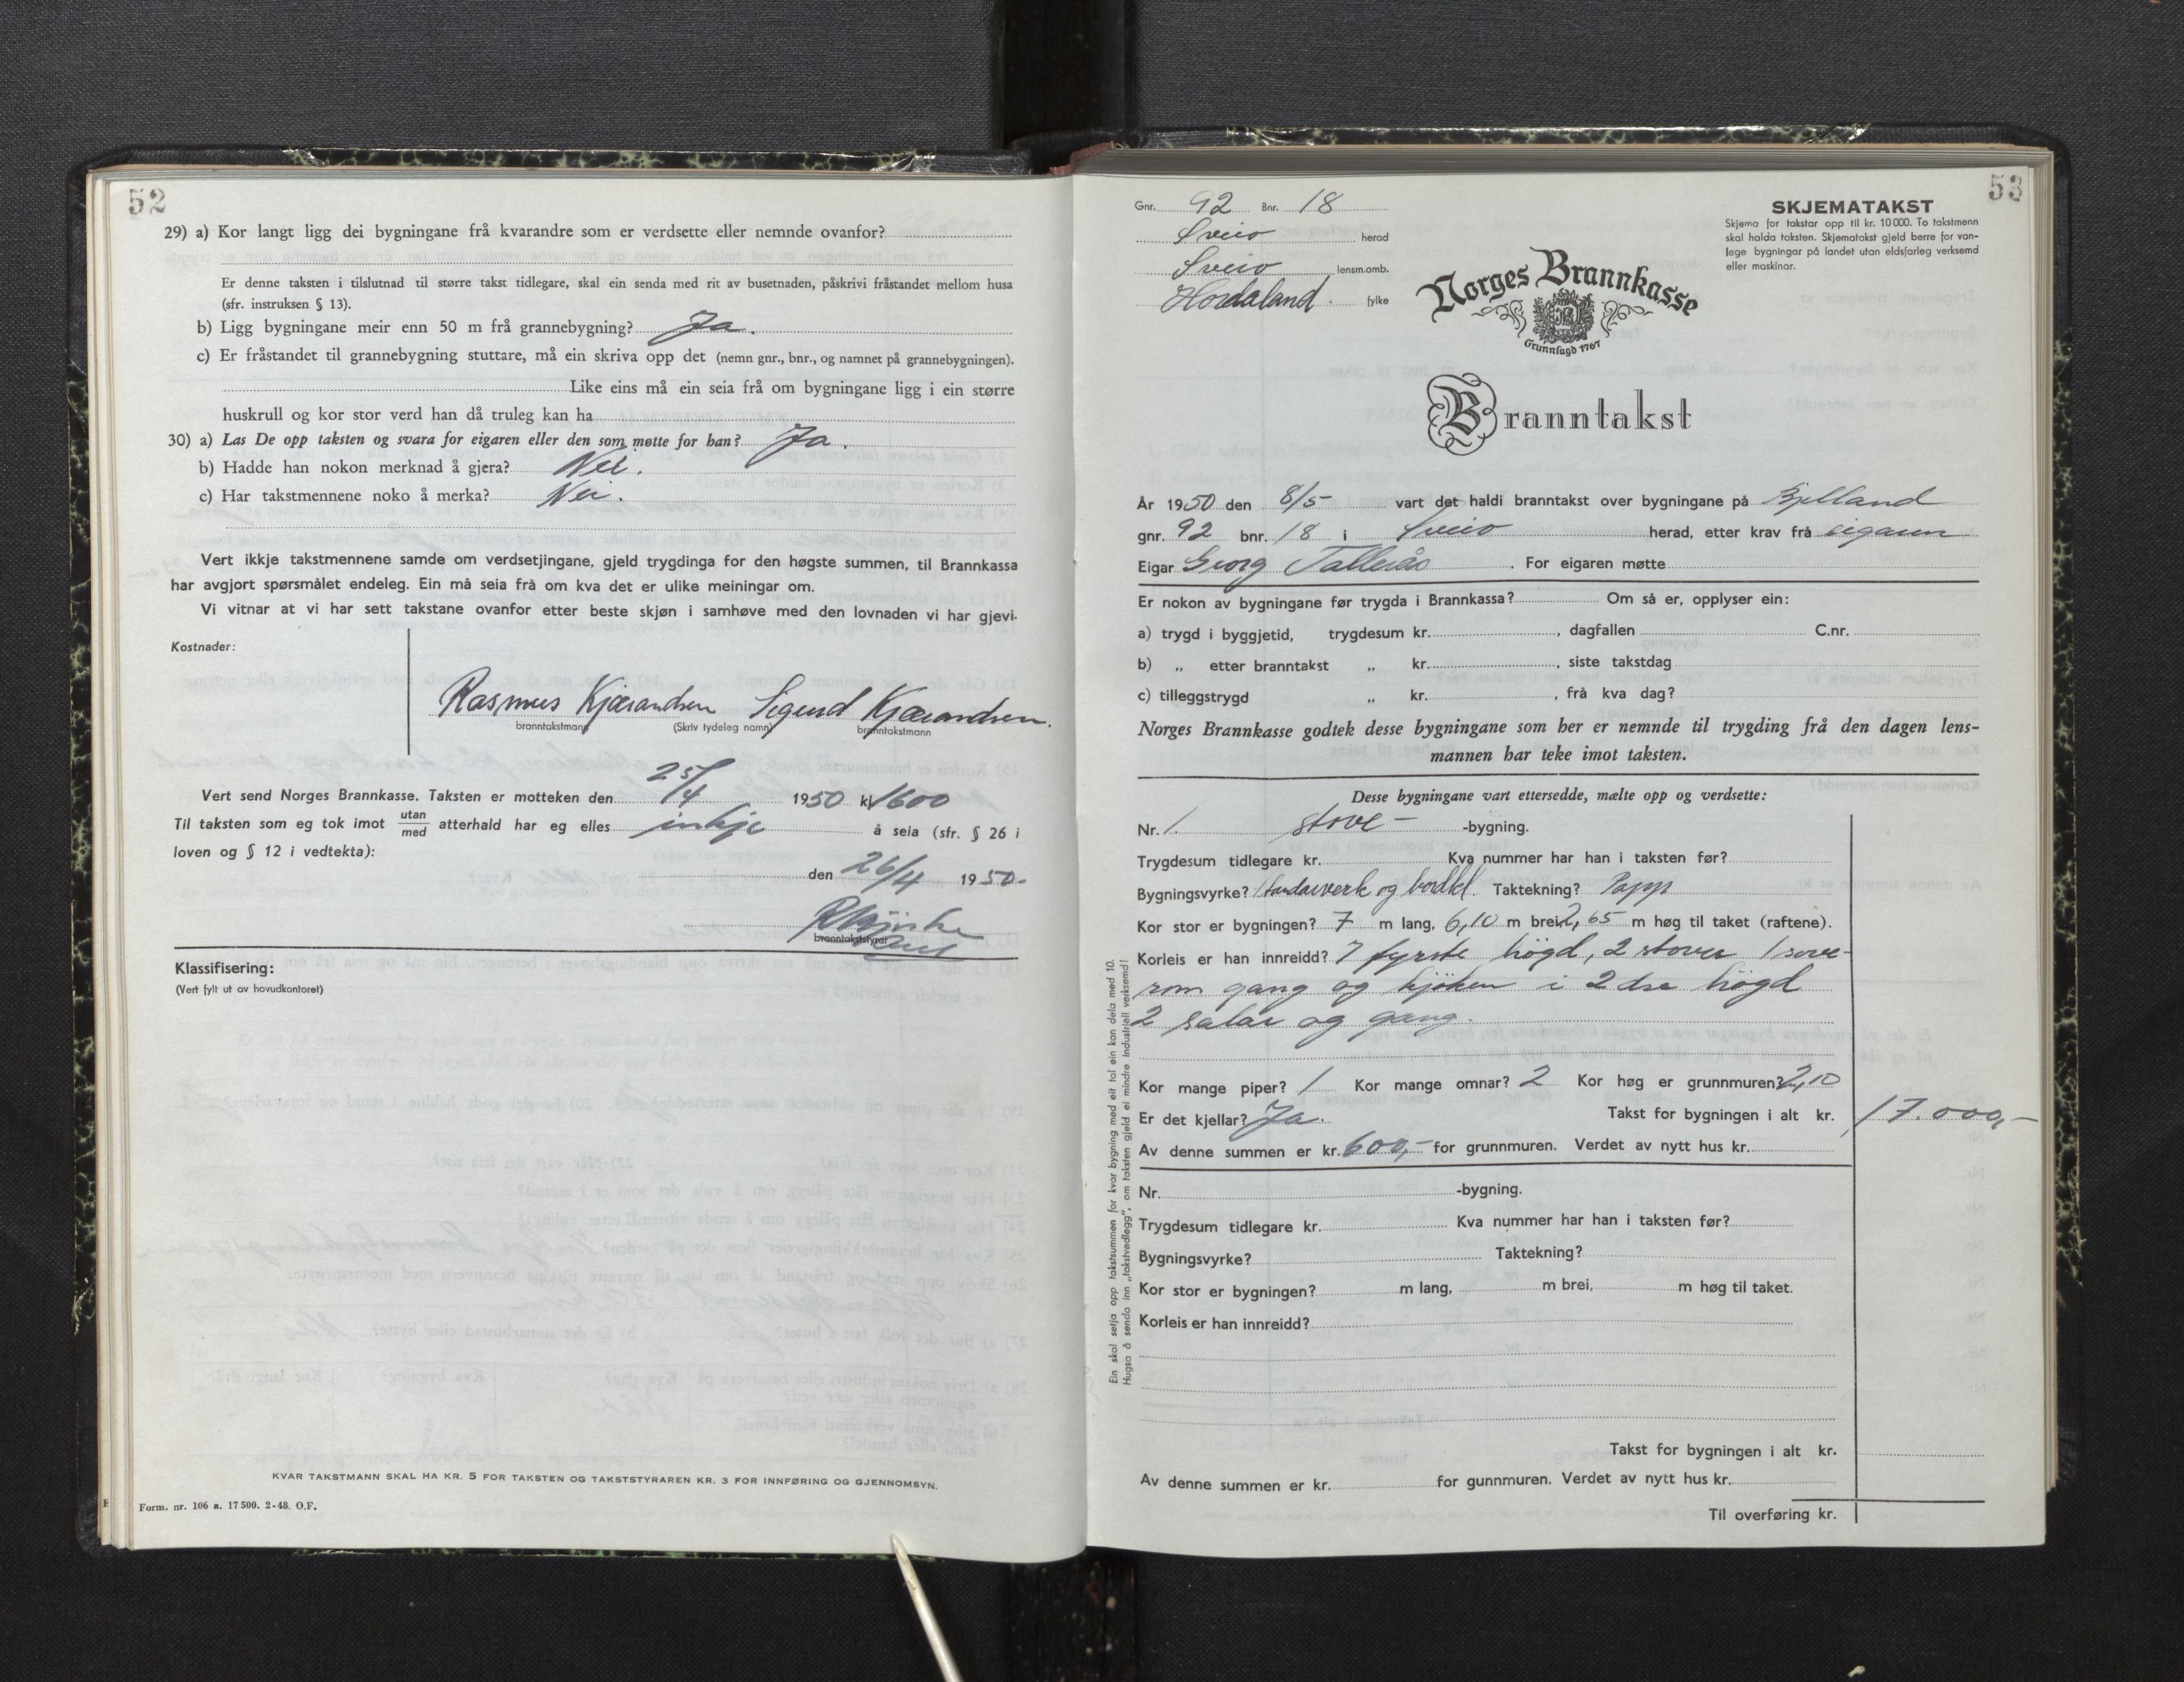 52
29) a) Kor langt ligg dei bygningane frå kvarandre som er verdsette eller nemnde ovanfor?
Er denne taksten i tilslutnad til større takst tidlegare, skal ein senda med rit av busetnaden, påskrivi fråstandet mellom husa
(sfr. instruksen § 13).
b) Ligg bygningane meir enn 50 m frå grannebygning? Ja.
c) Er fråstandet til grannebygning stuttare, må ein skriva opp det (nemn gnr., bnr., og namnet på grannebygningen).
Like eins må ein seia frå om bygningane ligg i ein større
huskrull og kor stor verd han då truleg kan ha
30) a) Las De opp taksten og svara for eigaren eller den som møtte for han? Ja.
b) Hadde han nokon merknad å gjera? Nei.
c) Har takstmennene noko å merka? Nei.
Vert ikkje takstmennene samde om verdsetjingane, gjeld trygdinga for den høgste summen, til Brannkassa
har avgjort spørsmålet endeleg. Ein må seia frå om kva det er ulike meiningar om.
Vi vitnar at vi har sett takstane ovanfor etter beste skjøn i samhøve med den lovnaden vi har gjevi.
Kostnader:
Rasmus Kjærandsen Sigurd Kjærandsen.
branntakstmann (Skriv tydeleg namn) branntakstmann
Vert send Norges Brannkasse. Taksten er motteken den 25/4 1950 kl 1600
Til taksten som eg tok imot utan/med atterhald har eg elles inkje å seia (sfr. § 26 i
loven og § 12 i vedtekta):
den 26/4 1950.
branntakststyrar
Klassifisering:
(Vert fylt ut av hovudkontoret)
KVAR TAKSTMANN SKAL HA KR. 5 FOR TAKSTEN OG TAKSTSTYRAREN KR. 3 FOR INNFØRING OG GJENNOMSYN.
Form. nr. 106 a. 17 500. 2-48. O.F.
53
Gnr. 92 Bnr. 18
Sveio herad
Sveio lensm.omb.
Hordaland. fylke
SKJEMATAKST
Skjema for takstar opp til kr. 10 000. To takstmenn
skal halda taksten. Skjematakst gjeld berre for van-
lege bygningar på landet utan eldsfarleg verksemd
eller maskinar.
Norges Brannkasse
Grunnlagd 1767
Branntakst
År 1950 den 8/5 vart det haldi branntakst over bygningane på Bjelland
gnr. 92 bnr. 18 i Sveio herad, etter krav frå eigaren
Eigar Georg Tallerås. For eigaren møtte
Er nokon av bygningane før trygda i Brannkassa? Om så er, opplyser ein:
a) trygd i byggjetid, trygdesum kr. , dagfallen C.nr.
b) „ etter branntakst „ kr. , siste takstdag
c) tilleggstrygd „ kr. , frå kva dag?
Norges Brannkasse godtek desse bygningane som her er nemnde til trygding frå den dagen lens-
mannen har teke imot taksten.
Desse bygningane vart ettersedde, mælte opp og verdsette:
Nr. 1. stove- -bygning.
Trygdesum tidlegare kr. Kva nummer har han i taksten før?
Bygningsvyrke? og Taktekning? Papp
Kor stor er bygningen? 7 m lang, 6,10 m brei, 2,65 m høg til taket (raftene).
Korleis er han innreidd? I fyrste högd, 2 stover 1 sove-
rom gang og kjöken i 2 dre högd
2 salar og gang.
Kor mange piper? 1 Kor mange omnar? 2 Kor høg er grunnmuren? 2,10
Er det kjellar? Ja. Takst for bygningen i alt kr. 17.000,-
Av denne summen er kr. 600,- for grunnmuren. Verdet av nytt hus kr.
Nr. -bygning.
Trygdesum tidlegare kr. Kva nummer har han i taksten før?
Bygningsvyrke? Taktekning?
Kor stor er bygningen? m lang, m brei, m høg til taket.
Korleis er han innreidd?
Takst for bygningen i alt kr.
Av denne summen er kr. for gunnmuren. Verdet av nytt hus kr.
Til overføring kr.
Ein skal setja opp takstsummen for kvar bygning med eit tal ein kan dela med 10.
Hugsa å senda inn „takstvedlegg", om taksten gjeld ei mindre industriell verksemd!